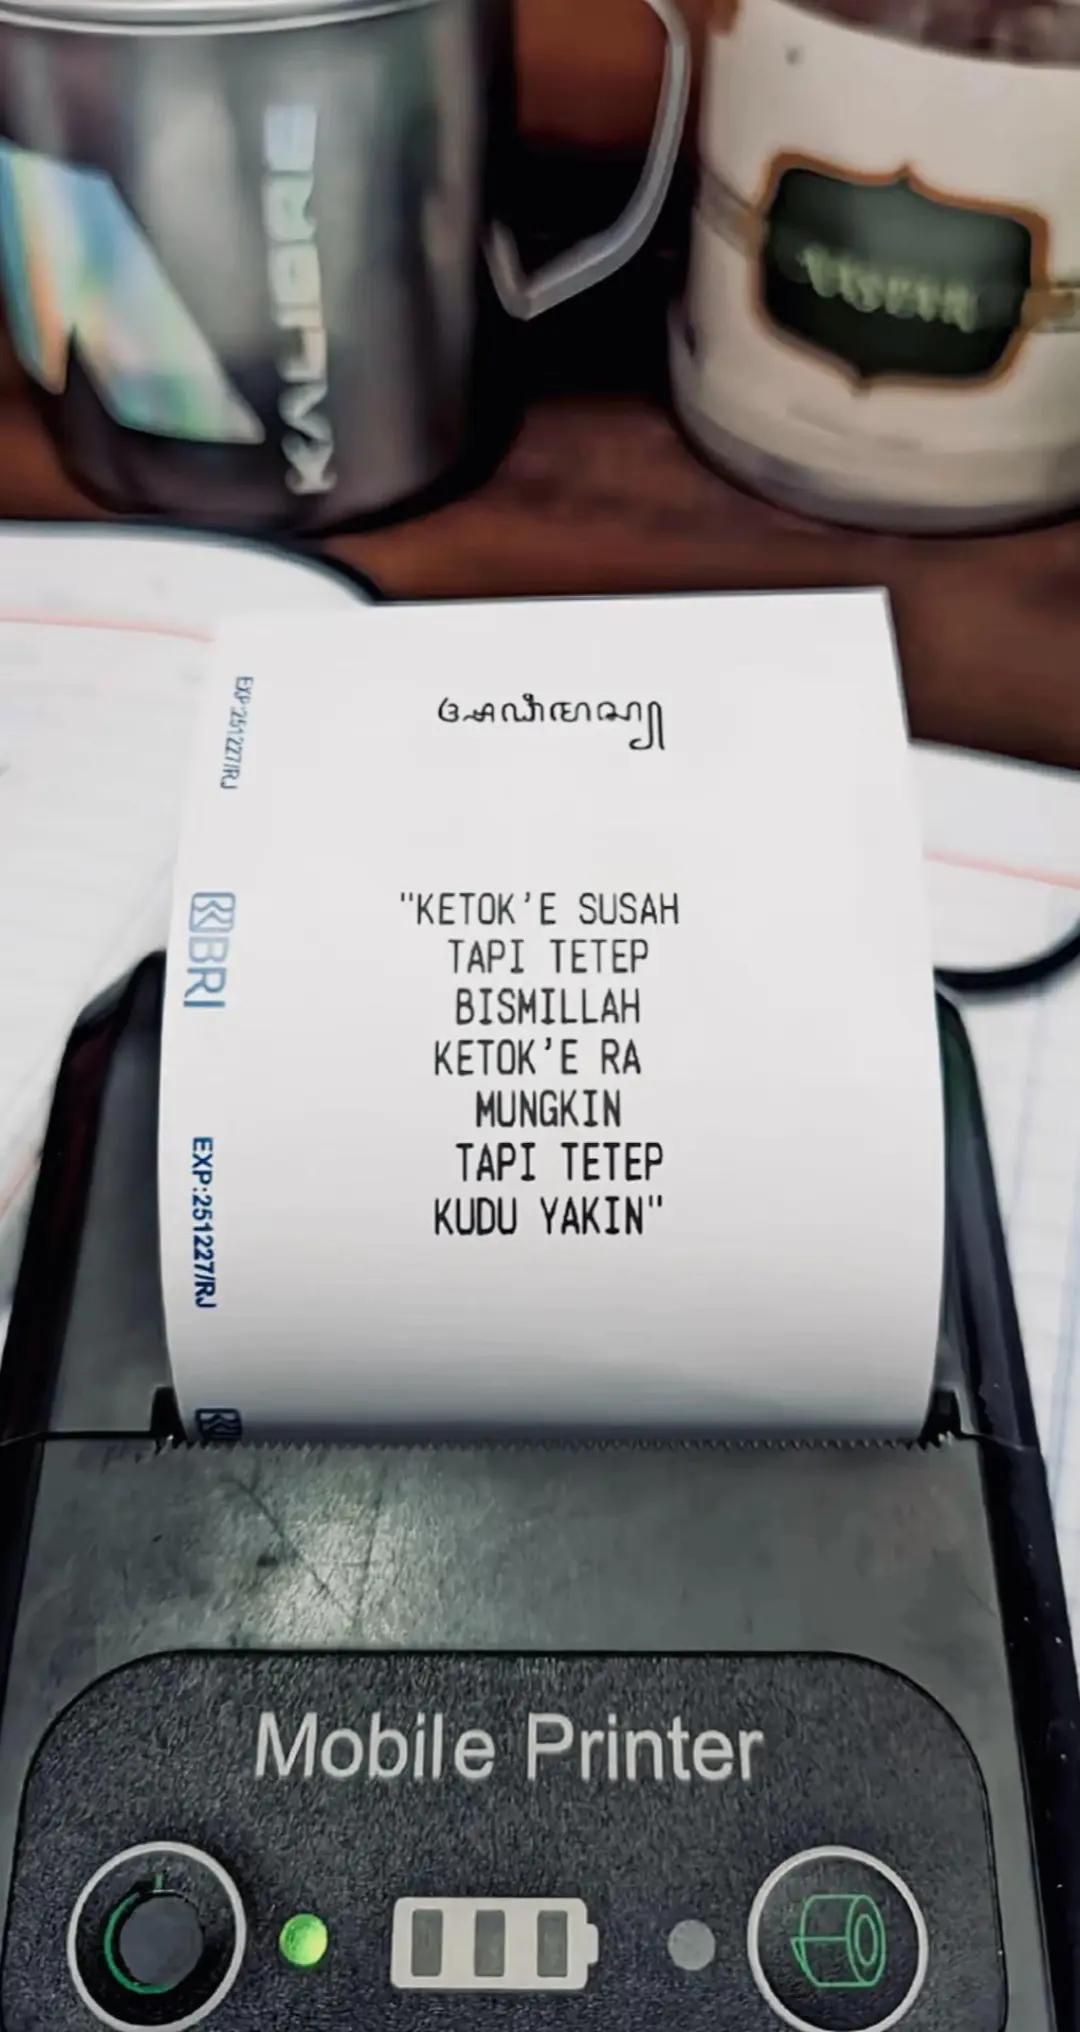 KALIBRE
"KETOK'E SUSAH
TAPI TETEP
BISMILLAH
KETOK'E RA
MUNGKIN
TAPI TETEP
KUDU YAKIN"
EXP:251227/RJ
BRI
EXP:251227/RJ
Mobile Printer